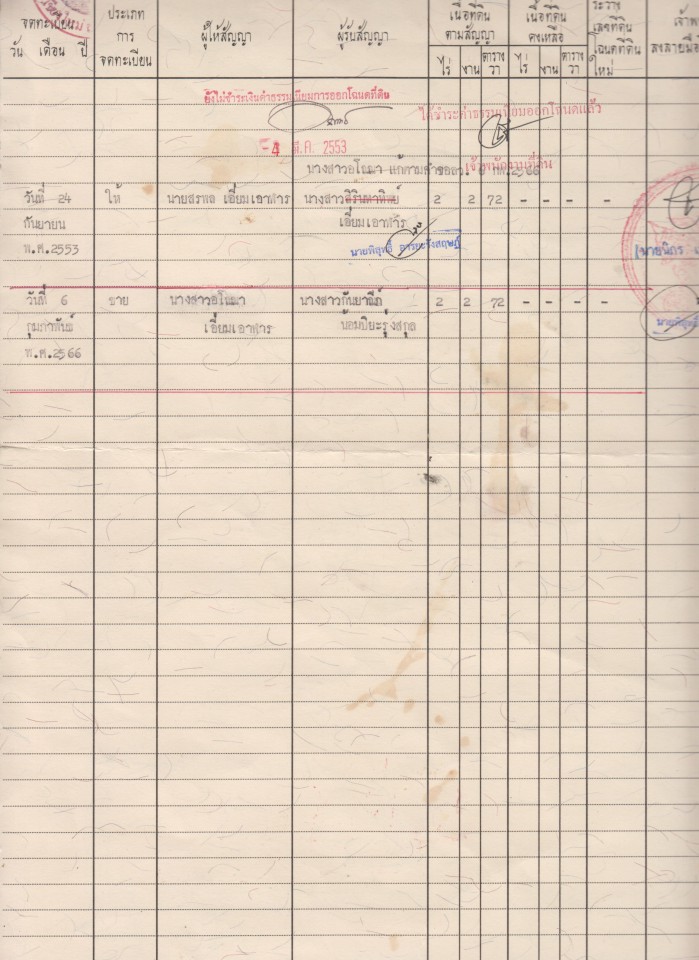 จดทะเบียน
วัน เดือน ปี
ประเภท
การ
จดทะเบียน
ผู้ให้สัญญา
ผู้รับสัญญา
เนื้อที่ดิน
ตามสัญญา
ไร่ งาน ตาราง
วา
เนื้อที่ดิน
คงเหลือ
ไร่ งาน ตาราง
วา
ระวาง
เลขที่ดิน
โฉนดที่ดิน
ใหม่
ลงลายมือ
ยังไม่ชำระเงินค่าธรรมเนียมการออกโฉนดที่ดิน
ได้ชำระค่าธรรมเนียมออกโฉนดแล้ว
-4 มี.ค. 2553
เจ้าพนักงานที่ดิน
นางสาวอโณมา แก้ตามคำขอลว. 6 กพ.2566
วันที่ 24 ให้ นายสรพล เอี่ยมเอาฬาร นางสาว 2 2 72 - - - -
กันยายน เอี่ยมเอาฬาร
พ.ศ.2553
วันที่ 6 ขาย นางสาวอโณมา นางสาวกันยาณัฏ 2 2 72 - - - -
กุมภาพันธ์ เอี่ยมเอาฬาร น้อมปิยะรุ่งสกุล
พ.ศ.2566